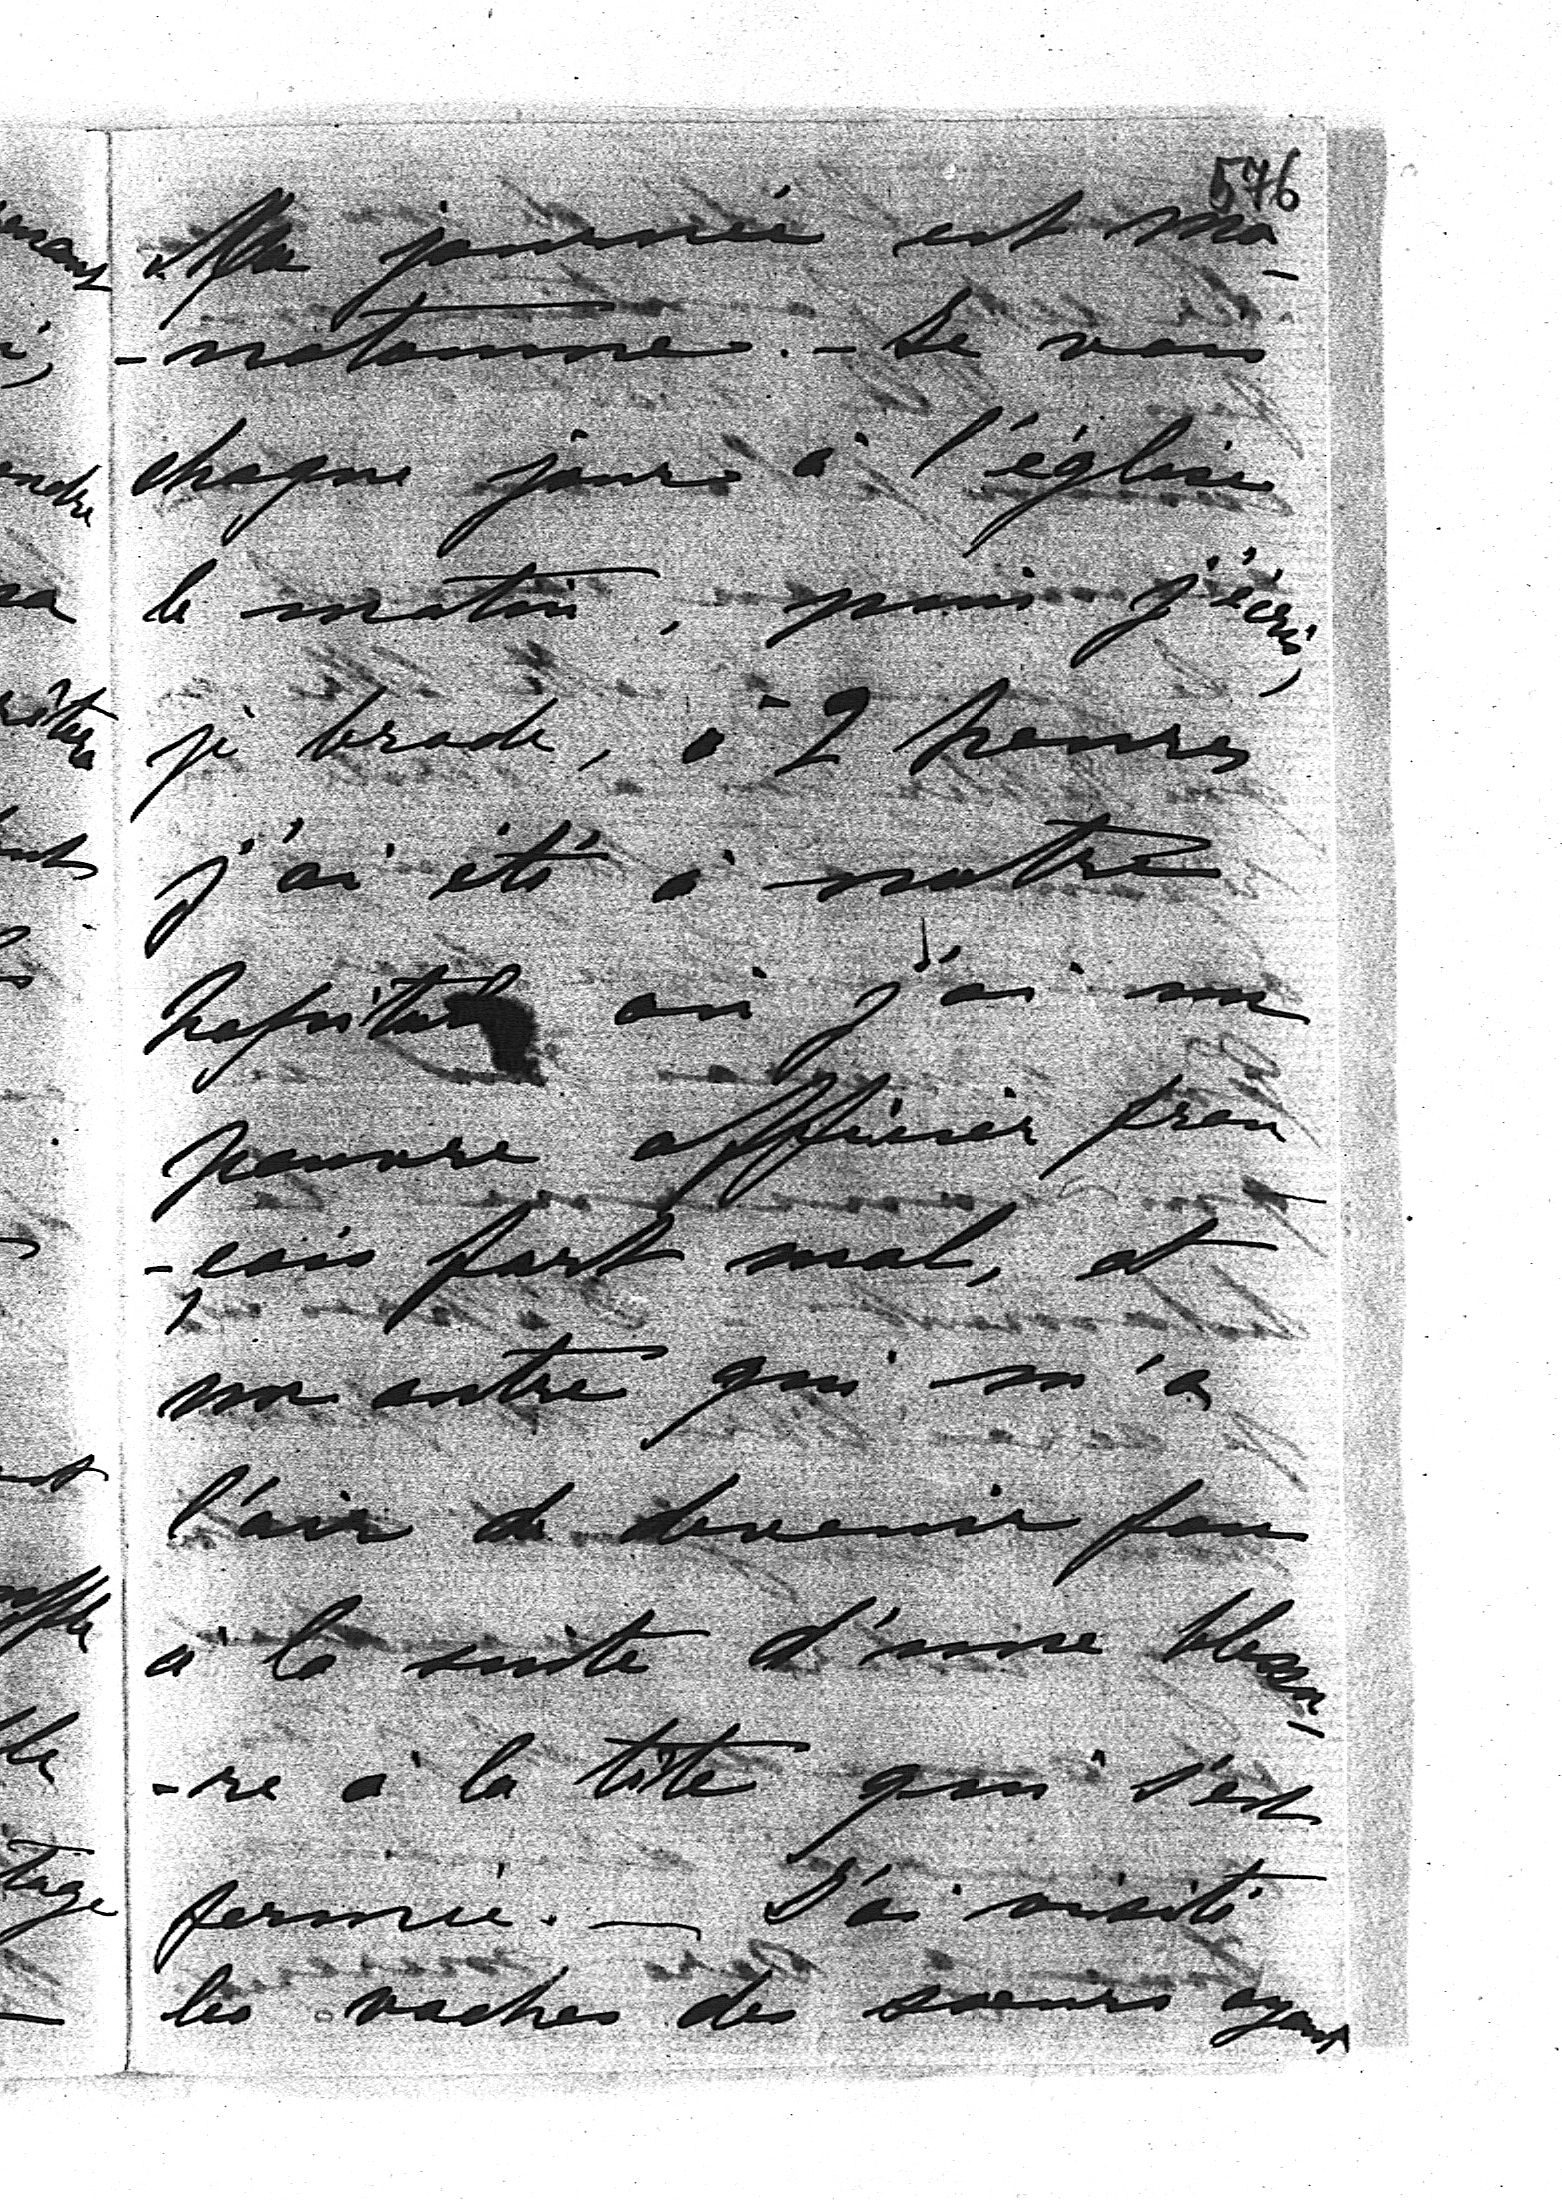 576
Ma journée est mo-
-notonne. - Je vais
chaque jour à l'église
le matin, puis j'écris,
je brode, à 2 heures
j'ai été à notre
hopital où j'ai un
pauvre officier fran
-çais fort mal, et
un autre qui m'a
l'air de devenir fou
à la suite d'une blessu-
-re à la tête qui s'est
fermée. - J'ai visité
les vaches des sœurs ayant